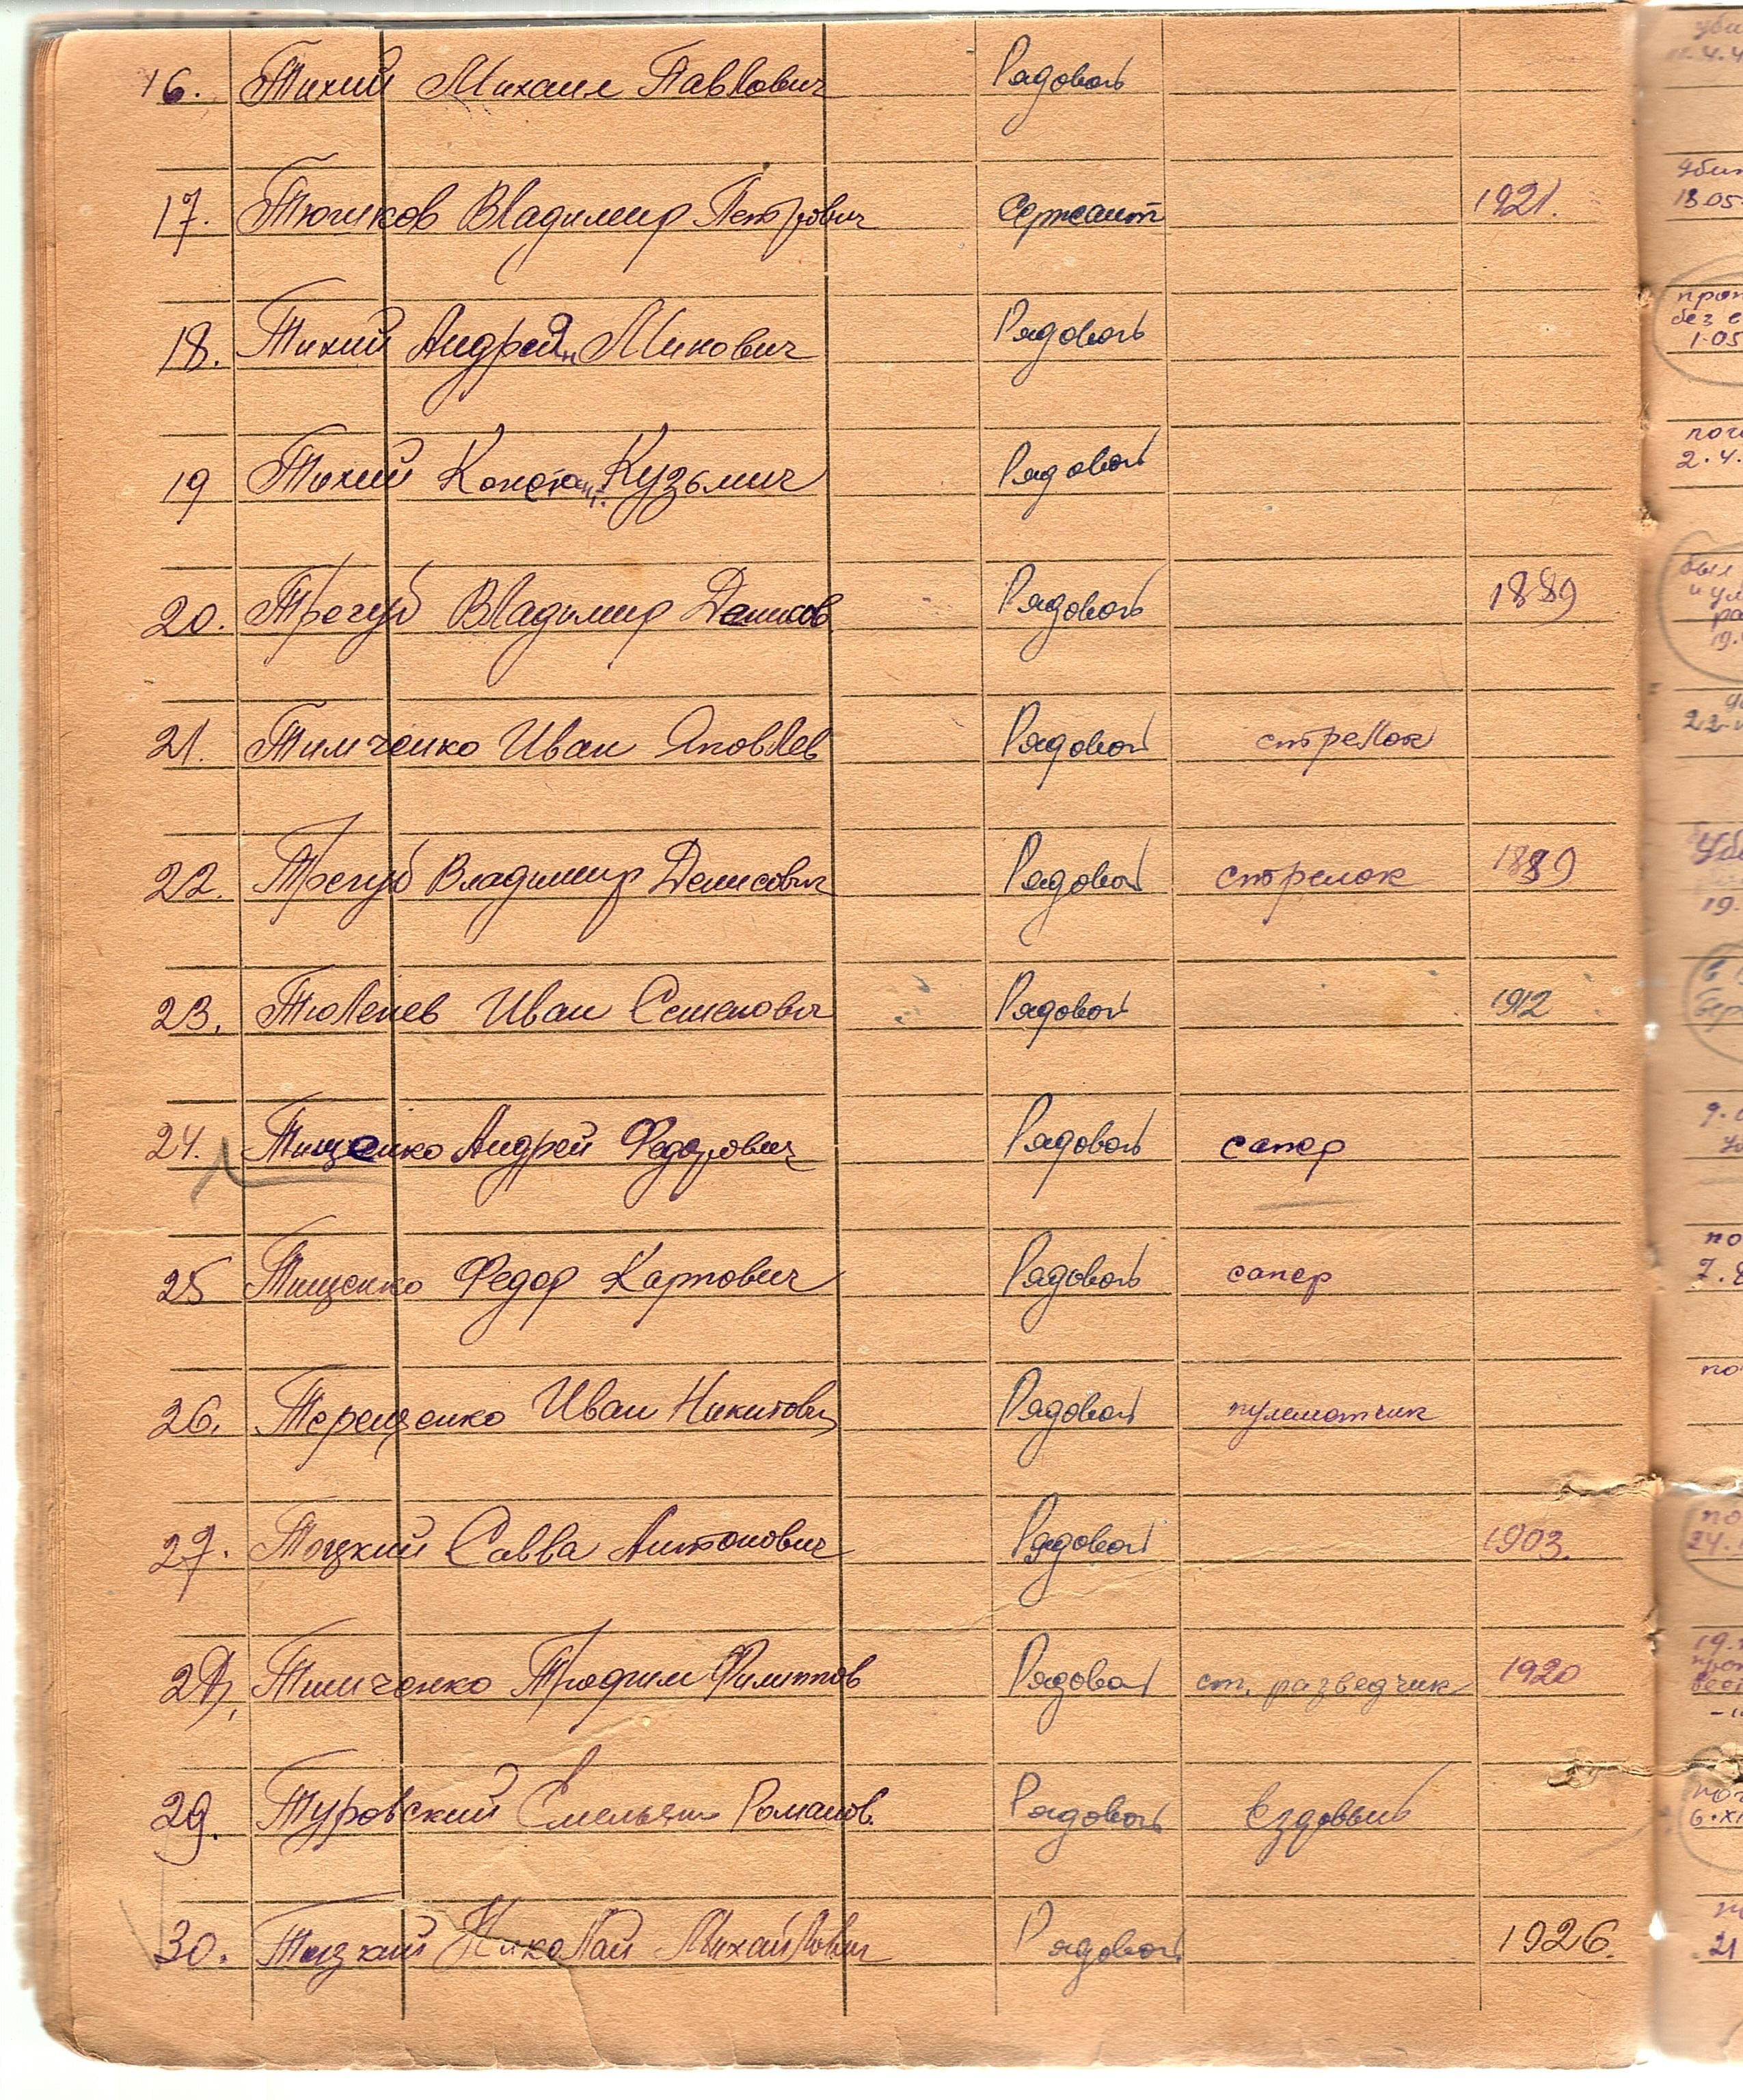 16. Тихий Михаил Павлович Рядовой
17. Тюшков Владимир Петрович сержант 1921.
18. Тихий Андрей Рядовой
19 Тихий Констан. Кузьмич Рядовой
20. Трегуб Владимир Денисов Рядовой 1889
21. Тимченко Иван Яковлев Рядовой стрелок
22. Трегуб Владимир Денисович Рядовой стрелок 1889
23. Тюленев Иван Семенович Рядовой 1912
24. Тищенко Андрей Федорович Рядовой сапер
25 Тищенко Федор Карпович Рядовой сапер
26. Терещенко Иван Никитович Рядовой пулеметчик
27. Тоцкий Савва Антонович Рядовой 1903.
28. Тимченко Трофим Филиппов Рядовой ст. разведчик 1920
29. Туровский Емельян Романов. Рядовой ездовый
30. Николай Михайлович Рядовой 1926.
18.05
без
1.05
2.4.
19.
24.
19.
21